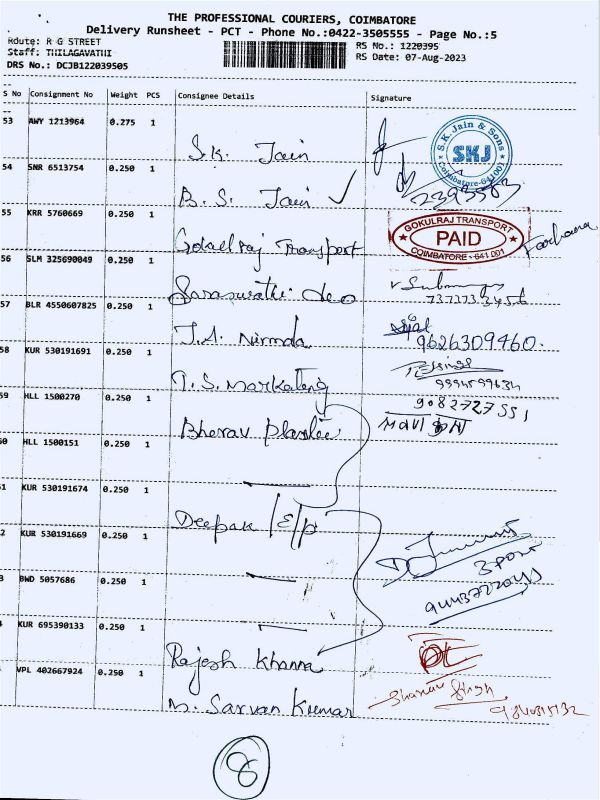 THE PROFESSIONAL COURIERS, COIMBATORE
Delivery Runsheet - PCT - Phone No.:0422-3505555 - Page No.:5
Route: R G STREET
Staff: THILAGAVATHI
DRS No.: DCJB122039505
RS No.: 1220395
RS Date: 07-Aug-2023
S No Consignment No Weight PCS Consignee Details Signature
53 AWY 1213964 0.275 1 S.K. Jain
S.K. Jain & Sons
SKJ
Coimbatore-641001
54 SNR 6513754 0.250 1 B. S. Jain
2393583
55 KRR 5760669 0.250 1 Transport
GOKULRAJ TRANSPORT
PAID
COIMBATORE - 641 001
Farhana
56 SLM 325690049 0.250 1
57 BLR 4550607825 0.250 1
9626309460.
58 KUR 530191691 0.250 1 T. S. Markateng
9994599634
59 HLL 1500270 0.250 1 Bherav
9082727551
60 HLL 1500151 0.250 1
1 KUR 530191674 0.250 1 Deepak E/p
2 KUR 530191669 0.250 1
3 BWD 5057686 0.250 1
KUR 695390133 0.250 1 Rajesh Khanna
VPL 402667924 0.250 1 M. Sarvan Kumar
Singh
8